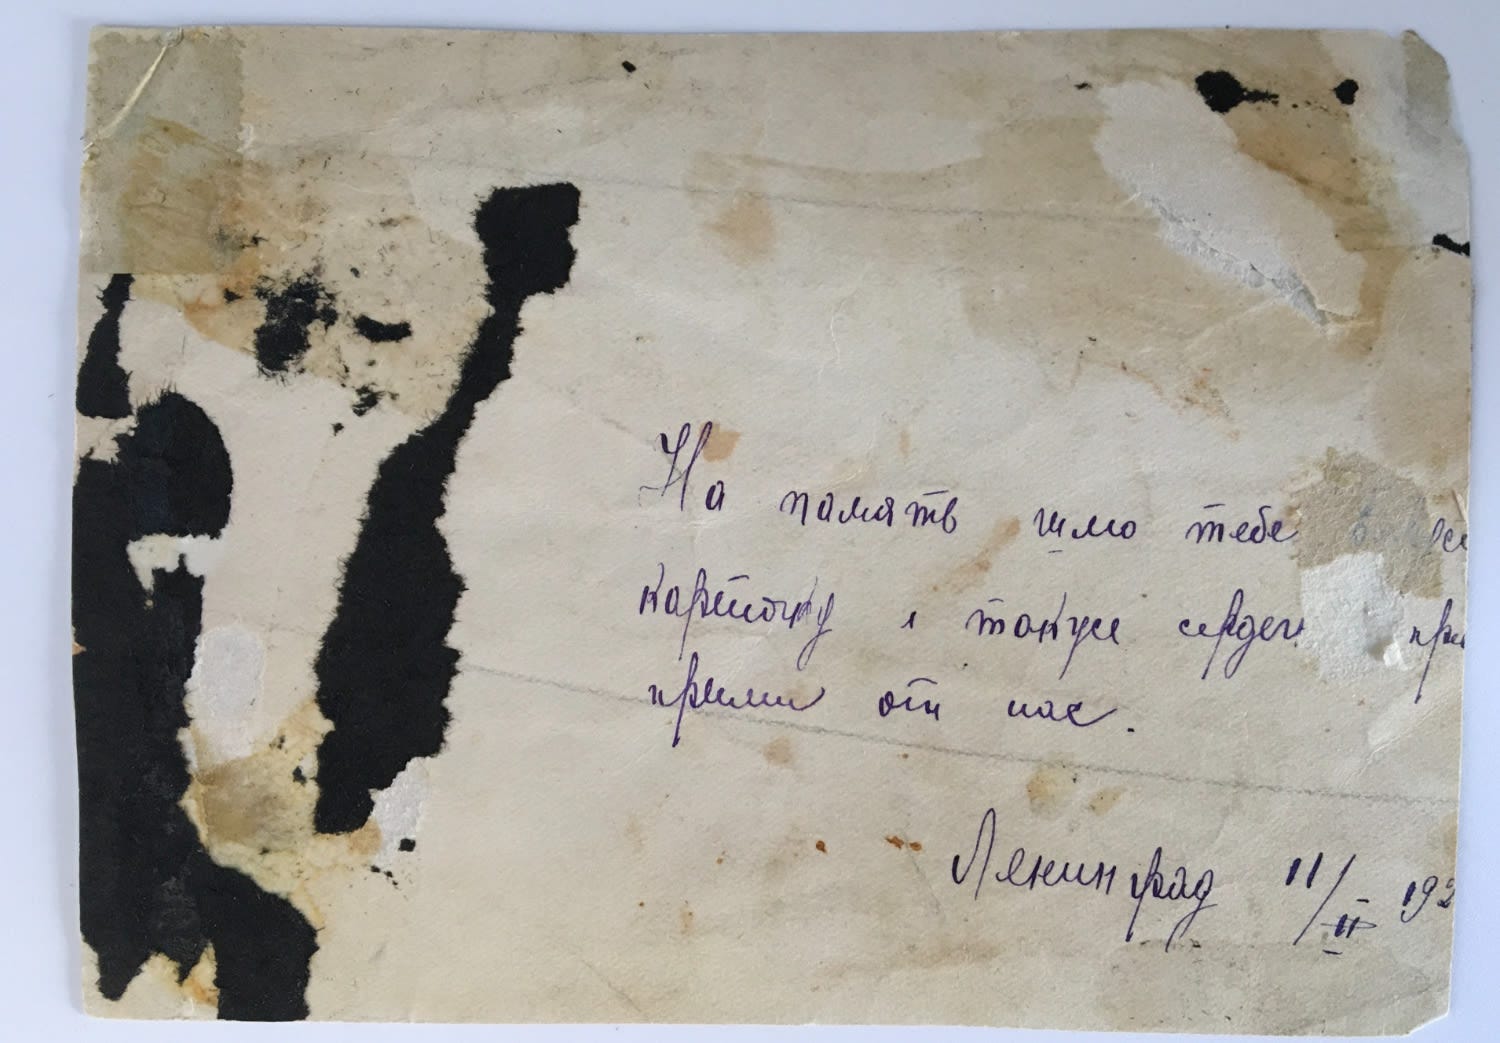 На память шлю тебе
карточку и такую сердечн при
прими от нас.
Ленинград 11/II 192